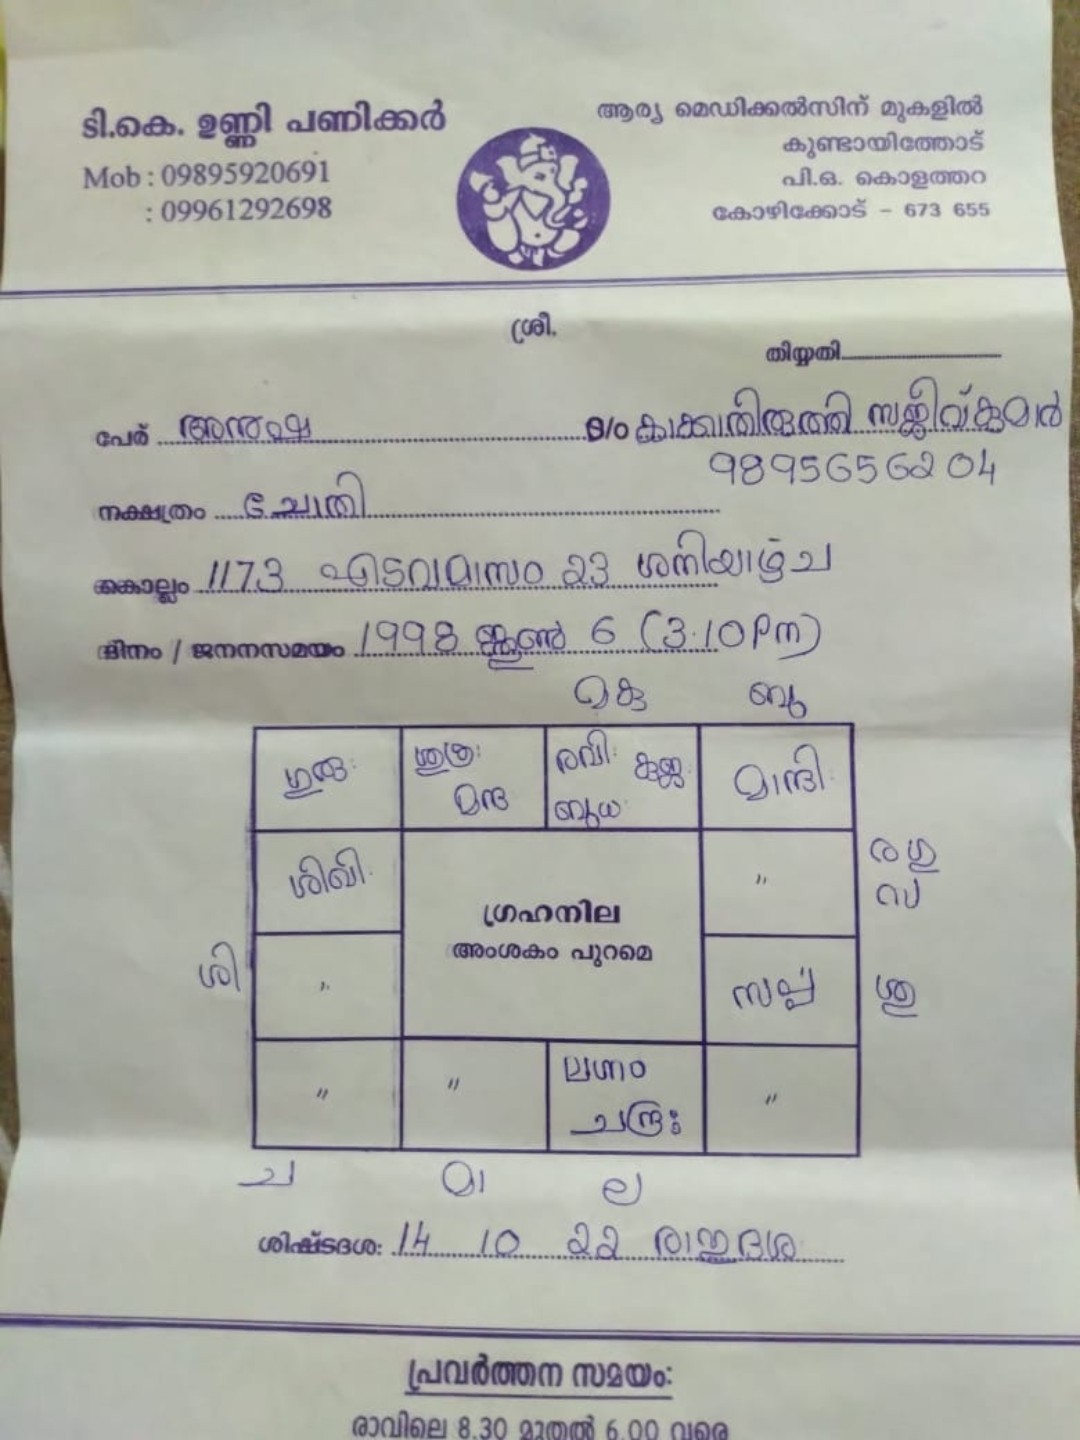 ടി.കെ. ഉണ്ണി പണിക്കർ
Mob : 09895920691
: 09961292698
ആര്യ മെഡിക്കൽസിന് മുകളിൽ
കുണ്ടായിത്തോട്
പി.ഒ. കൊളത്തറ
കോഴിക്കോട് - 673 655
ശ്രീ.
തിയ്യതി
പേര് അനുഷ D/o കാക്കാതിരുത്തി സജീവ്കുമാർ
9895656204
നക്ഷത്രം ചോതി
കൊല്ലം 1173 എടവമാസം 23 ശനിയാഴ്ച
ദിനം / ജനനസമയം 1998 ജൂൺ 6 (3.10 Pm)
മ കു ബു
ഗുരു: ശുക്ര: മന്ദ രവി: കുജ: ബുധ: മാന്ദി:
ശിഖി: " ര ഗു
സ
ഗ്രഹനില
അംശകം പുറമെ
ശി " സർപ്പ ശു
" " ലഗ്നം ചന്ദ്ര: "
ച മാ ല
ശിഷ്ടദശ: 14 10 22 രാഹുദശ
പ്രവർത്തന സമയം:
രാവിലെ 8.30 മുതൽ 6.00 വരെ